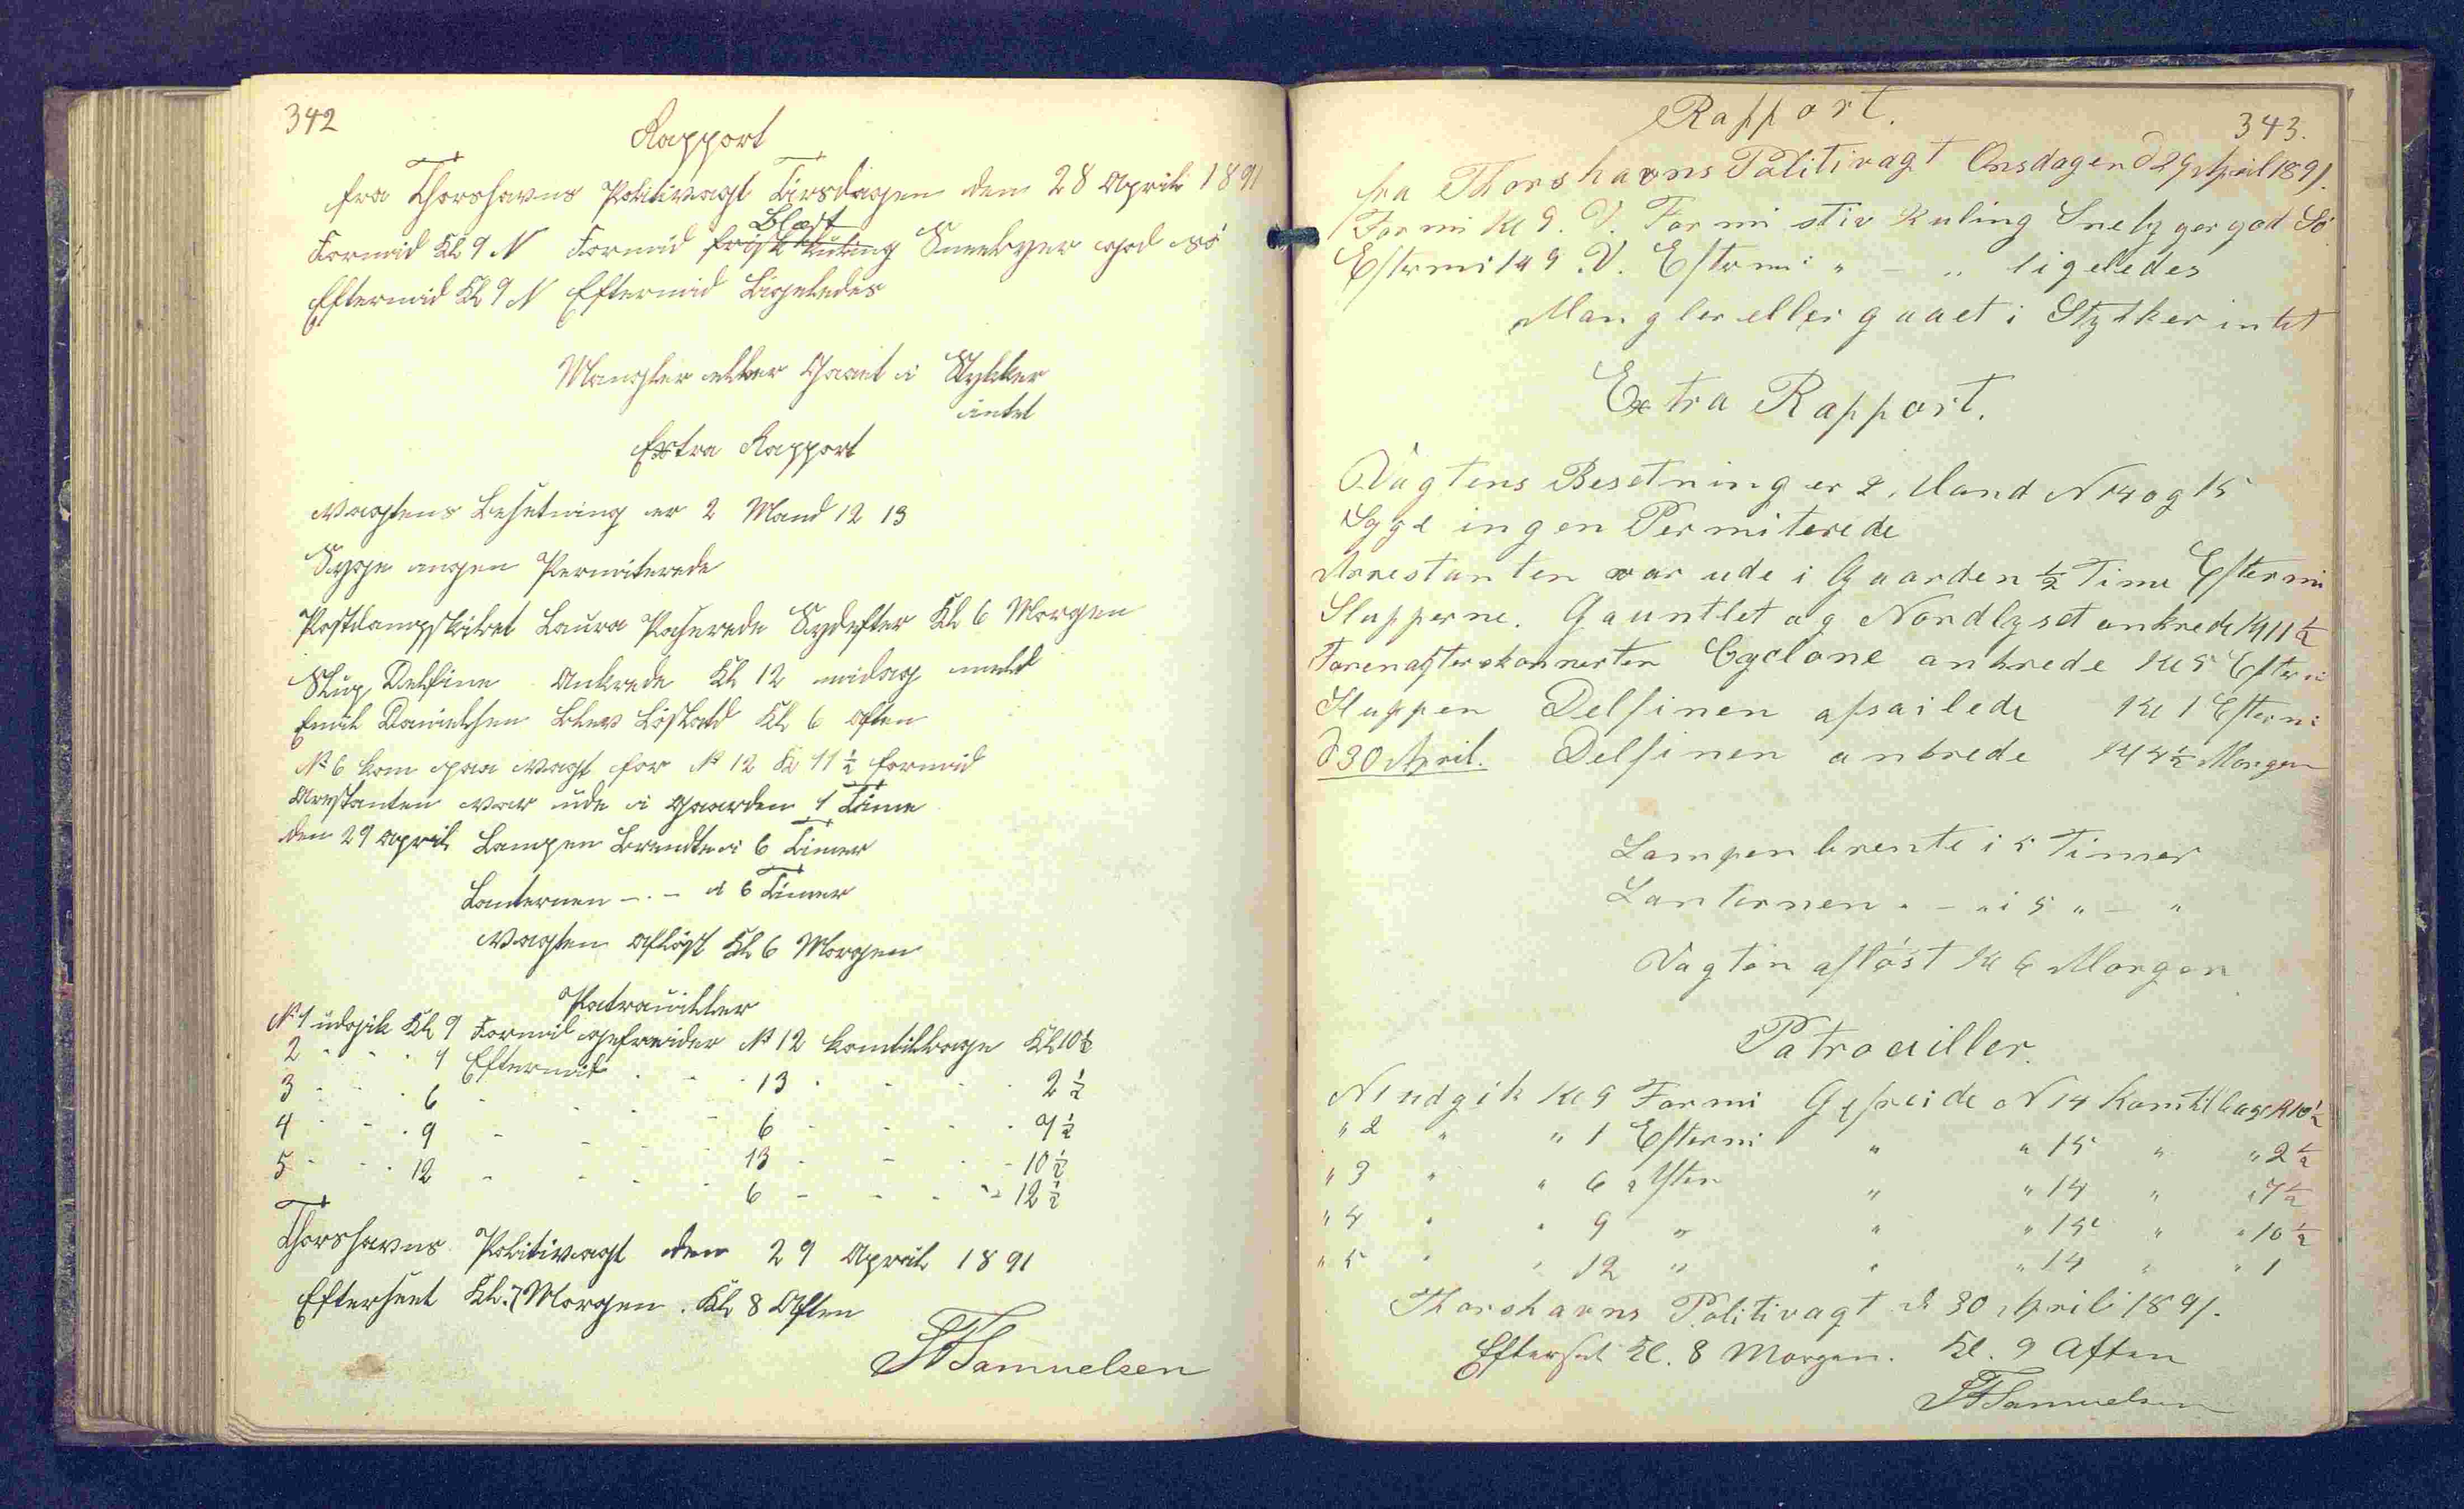 342
Rapport
fra Thorshavns Politivagt Tirsdagen den 28 April 1891
Blæst
Formid Kl 9 N Formid frisk Kuling Sneebyer god Sö
Eftermid Kl 9 N Eftermid Ligeledes
Mangler eller Gaaet i Stykker
intet
Extra Rapport
Vagtens Besetning er 2 Mand 12 13
Syge ingen Permiterede
Postdampskibet Laura Paserede Sydefter Kl 6 Morgen
Slup Delfine Ankrede Kl 12 midag
Emil Danielsen Blev Löslatd Kl 6 Aften
No 6 kom paa vagt for No 12 Kl 11 ½ formid
Arestanten var ude i Gaarden 1 Time
den 29 April Lampen Brendte i 6 Timer
Lanternen - . - i 6 Timer
Vagten Aflöst Kl 6 Morgen
Patrouiller
No 1 udgik Kl 9 Formid gefreider No 12 komtilbage Kl 10 ½
2 - - - 1 Eftermid - - - 13 - - - 2 ½
3 - - - 6 - - - 6 - - - 7 ½
4 - - - 9 - - - 13 - - - 10 ½
5 - - - 12 - - - 6 - - - 12 ½
Thorshavns Politivagt den 29 April 1891
Efterseet Kl. 7 Morgen. Kl 8 Aften
Samuelsen
343.
Rapport.
fra Thorshavns Politivagt Onsdagen d 29 April 1891.
Formi Kl 9. V. Formi stiv Kuling Snebyger god Sö
Eftermi Kl 9. V. Eftermi " - " ligeledes
Mangler eller gaaet i Stykker intet
Extra Rapport.
Vagtens Besetning er 2 Mand N 14 og 15
Syge ingen Permiterede
Arrestanten var ude i Gaarden ½ Time Eftermi
Slupperne. Gauntlet og Nordlyset ankrede Kl 11 ½
Forenafterskonnerten Cyclone ankrede Kl 5 Eftermi
Sluppen Delfinen afsailede Kl 1 Eftermi
d 30 April. Delfinen ankrede Kl 4 ½ Morgen
Lampen brente i 5 Timer
Lanternen " - " i 5 " - "
Vagten aflöst Kl 6 Morgen
Patrouiller.
N 1 udgik Kl 9 Formi Gefreide N 14 Komtilbage K 10 ½
" 2 " " 1 Eftermi " " 15 " " 2 ½
" 3 " " 6 Aften " " 14 " " 7 ½
" 4 " " 9 " " " 15 " " 10 ½
" 5 " " 12 " " " 14 " " 1
Thorshavns Politivagt d 30 April 1891.
Efterset Kl. 8 Morgen. Kl. 9 Aften
Samuelsen